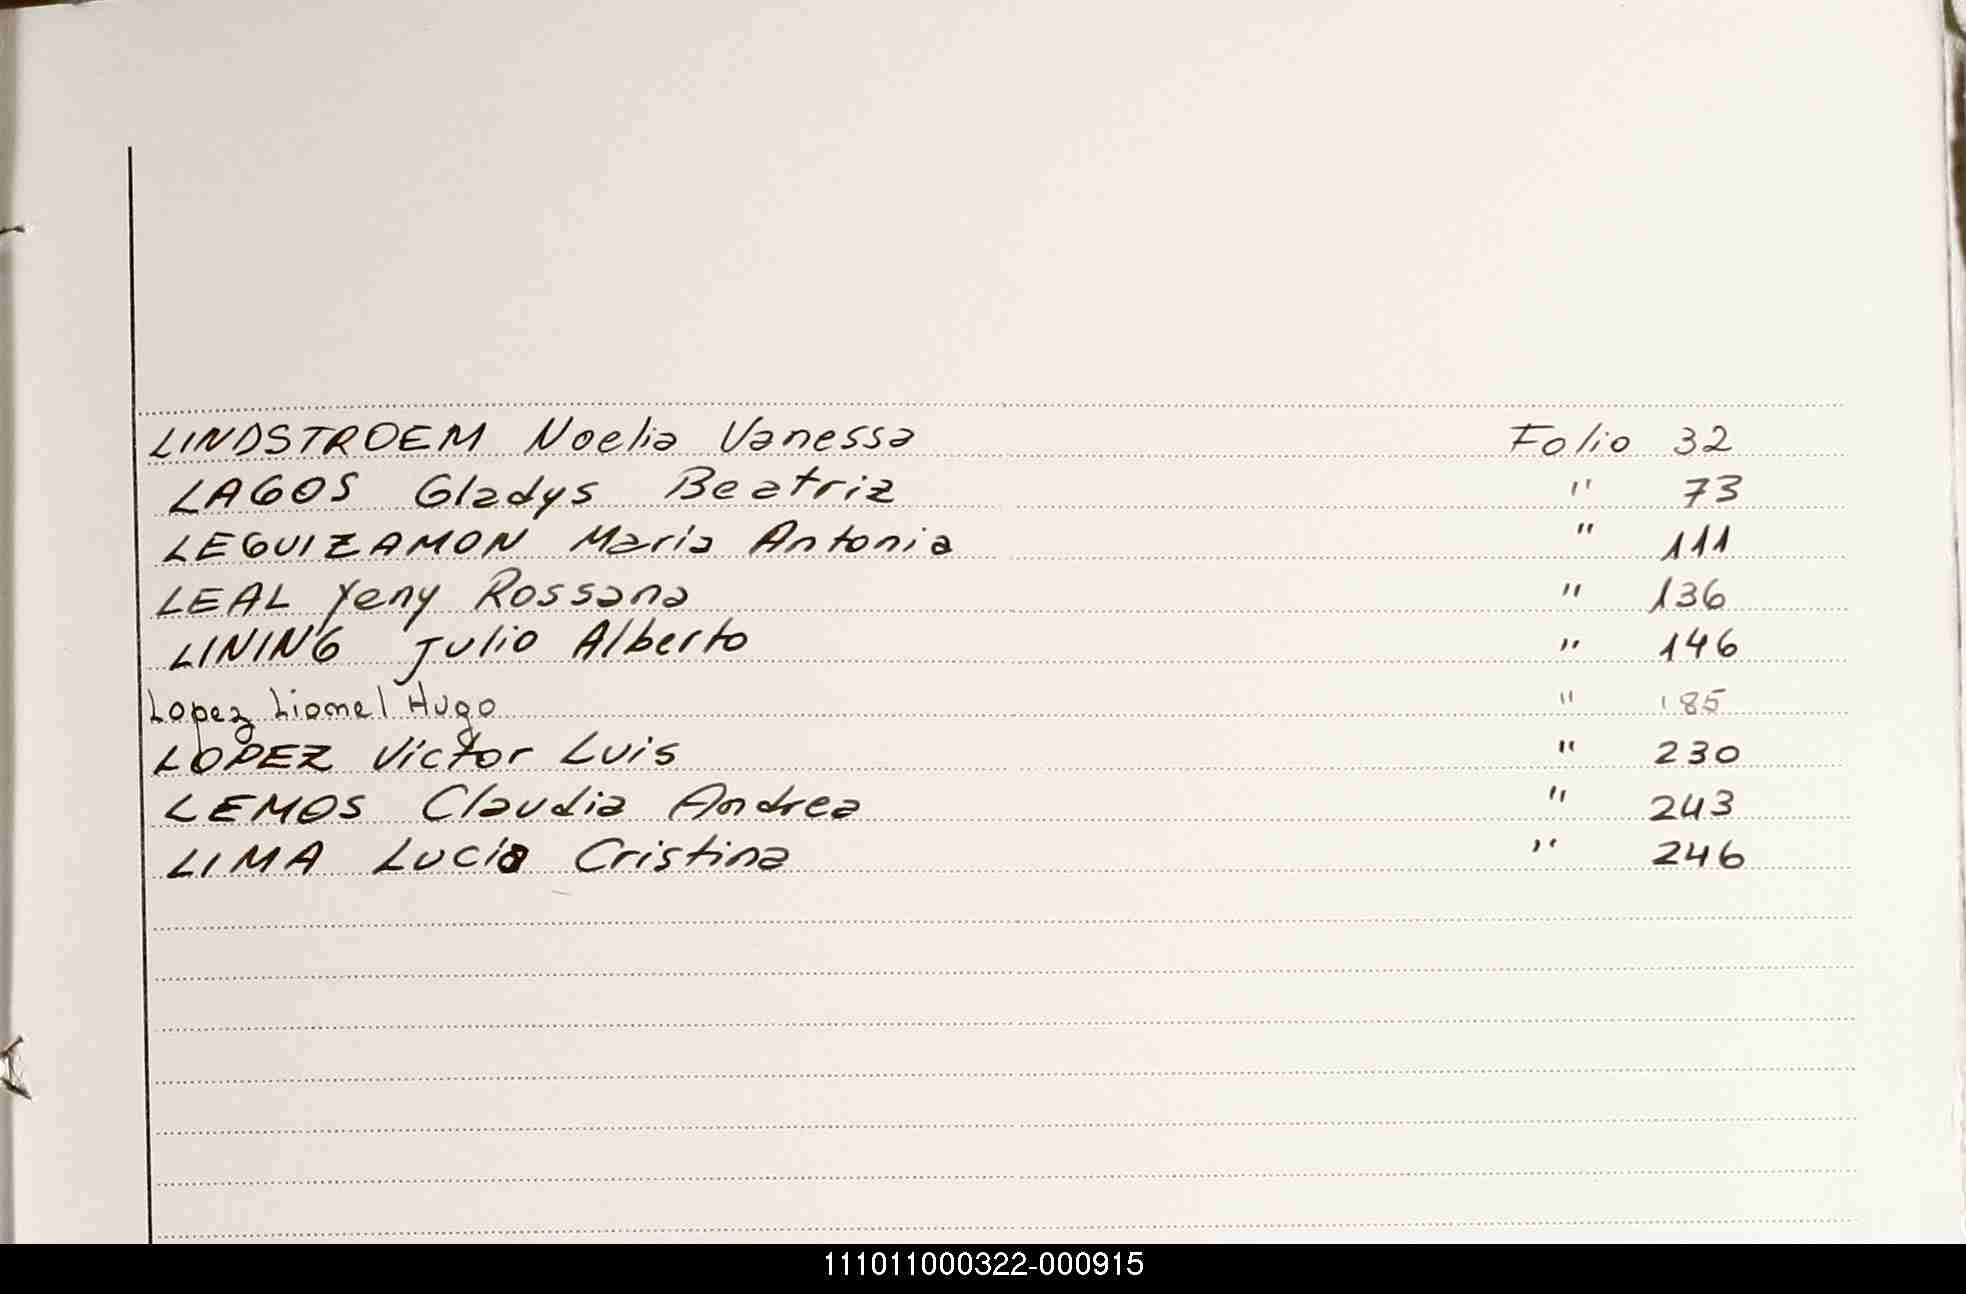 LINDSTROEM Noelia Vanessa Folio 32
LAGOS Gladys Beatriz " 73
LEGUIZAMON Maria Antonia " 111
LEAL Yeny Rossana " 136
LINING Julio Alberto " 146
Lopez Lionel Hugo " 185
LOPEZ Victor Luis " 230
LEMOS Claudia Andrea " 243
LIMA Lucia Cristina " 246
111011000322-000915